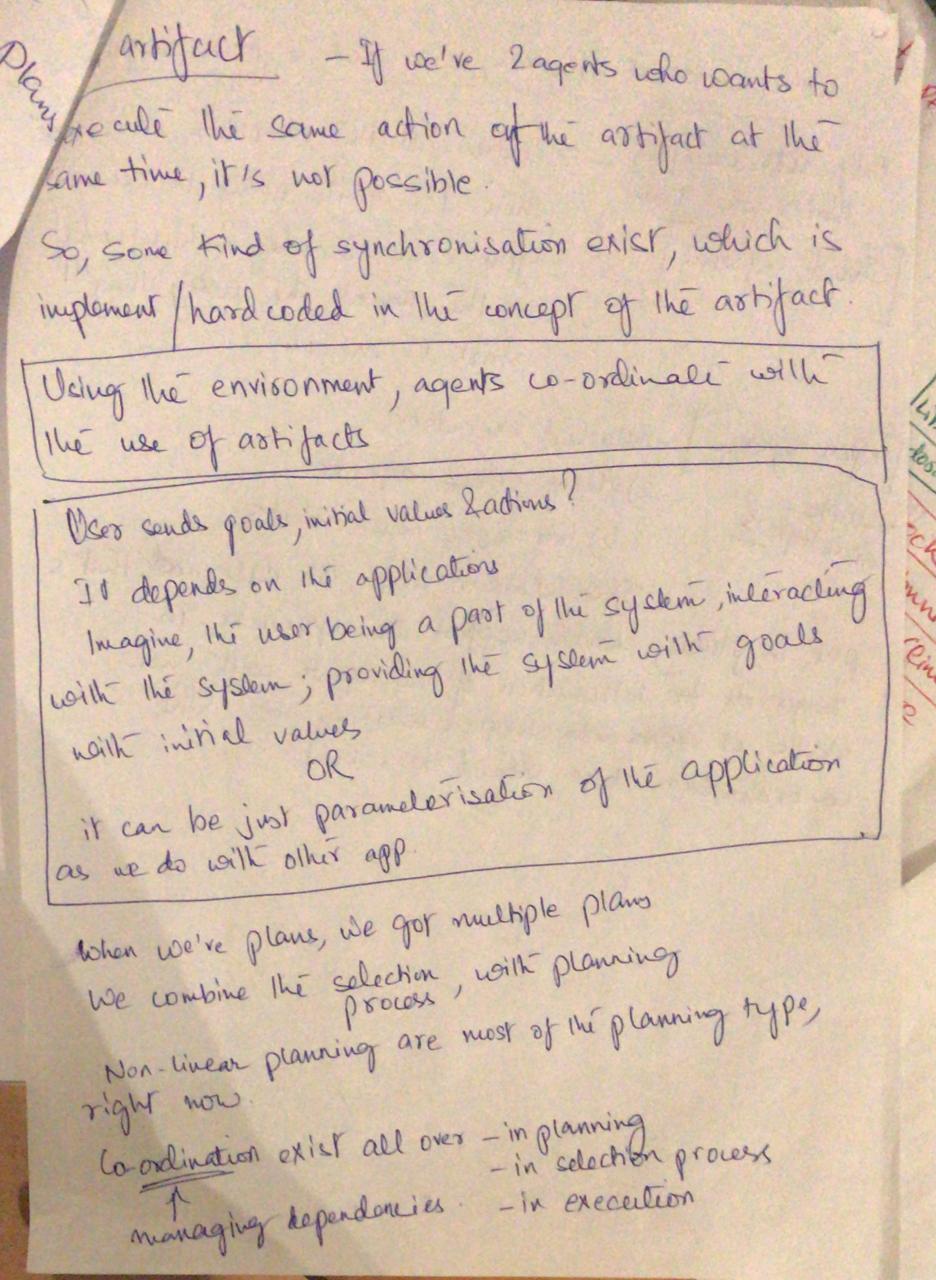 Plans
artifact - If we've 2 agents who wants to
execute the same action of the artifact at the
same time, it's not possible.
So, some kind of synchronisation exist, which is
implement / hard coded in the concept of the artifact.
Using the environment, agents co-ordinate with
the use of artifacts
User sends goals, initial values & actions?
It depends on the applications
Imagine, the user being a part of the system, interacting
with the system; providing the system with goals
with initial values
OR
it can be just parameterisation of the application
as we do with other app.
When we've plans, we got multiple plans
We combine the selection process, with planning
Non-linear planning are most of the planning type,
right now.
Co-ordination exist all over - in planning
- in selection process
managing dependencies. - in execution